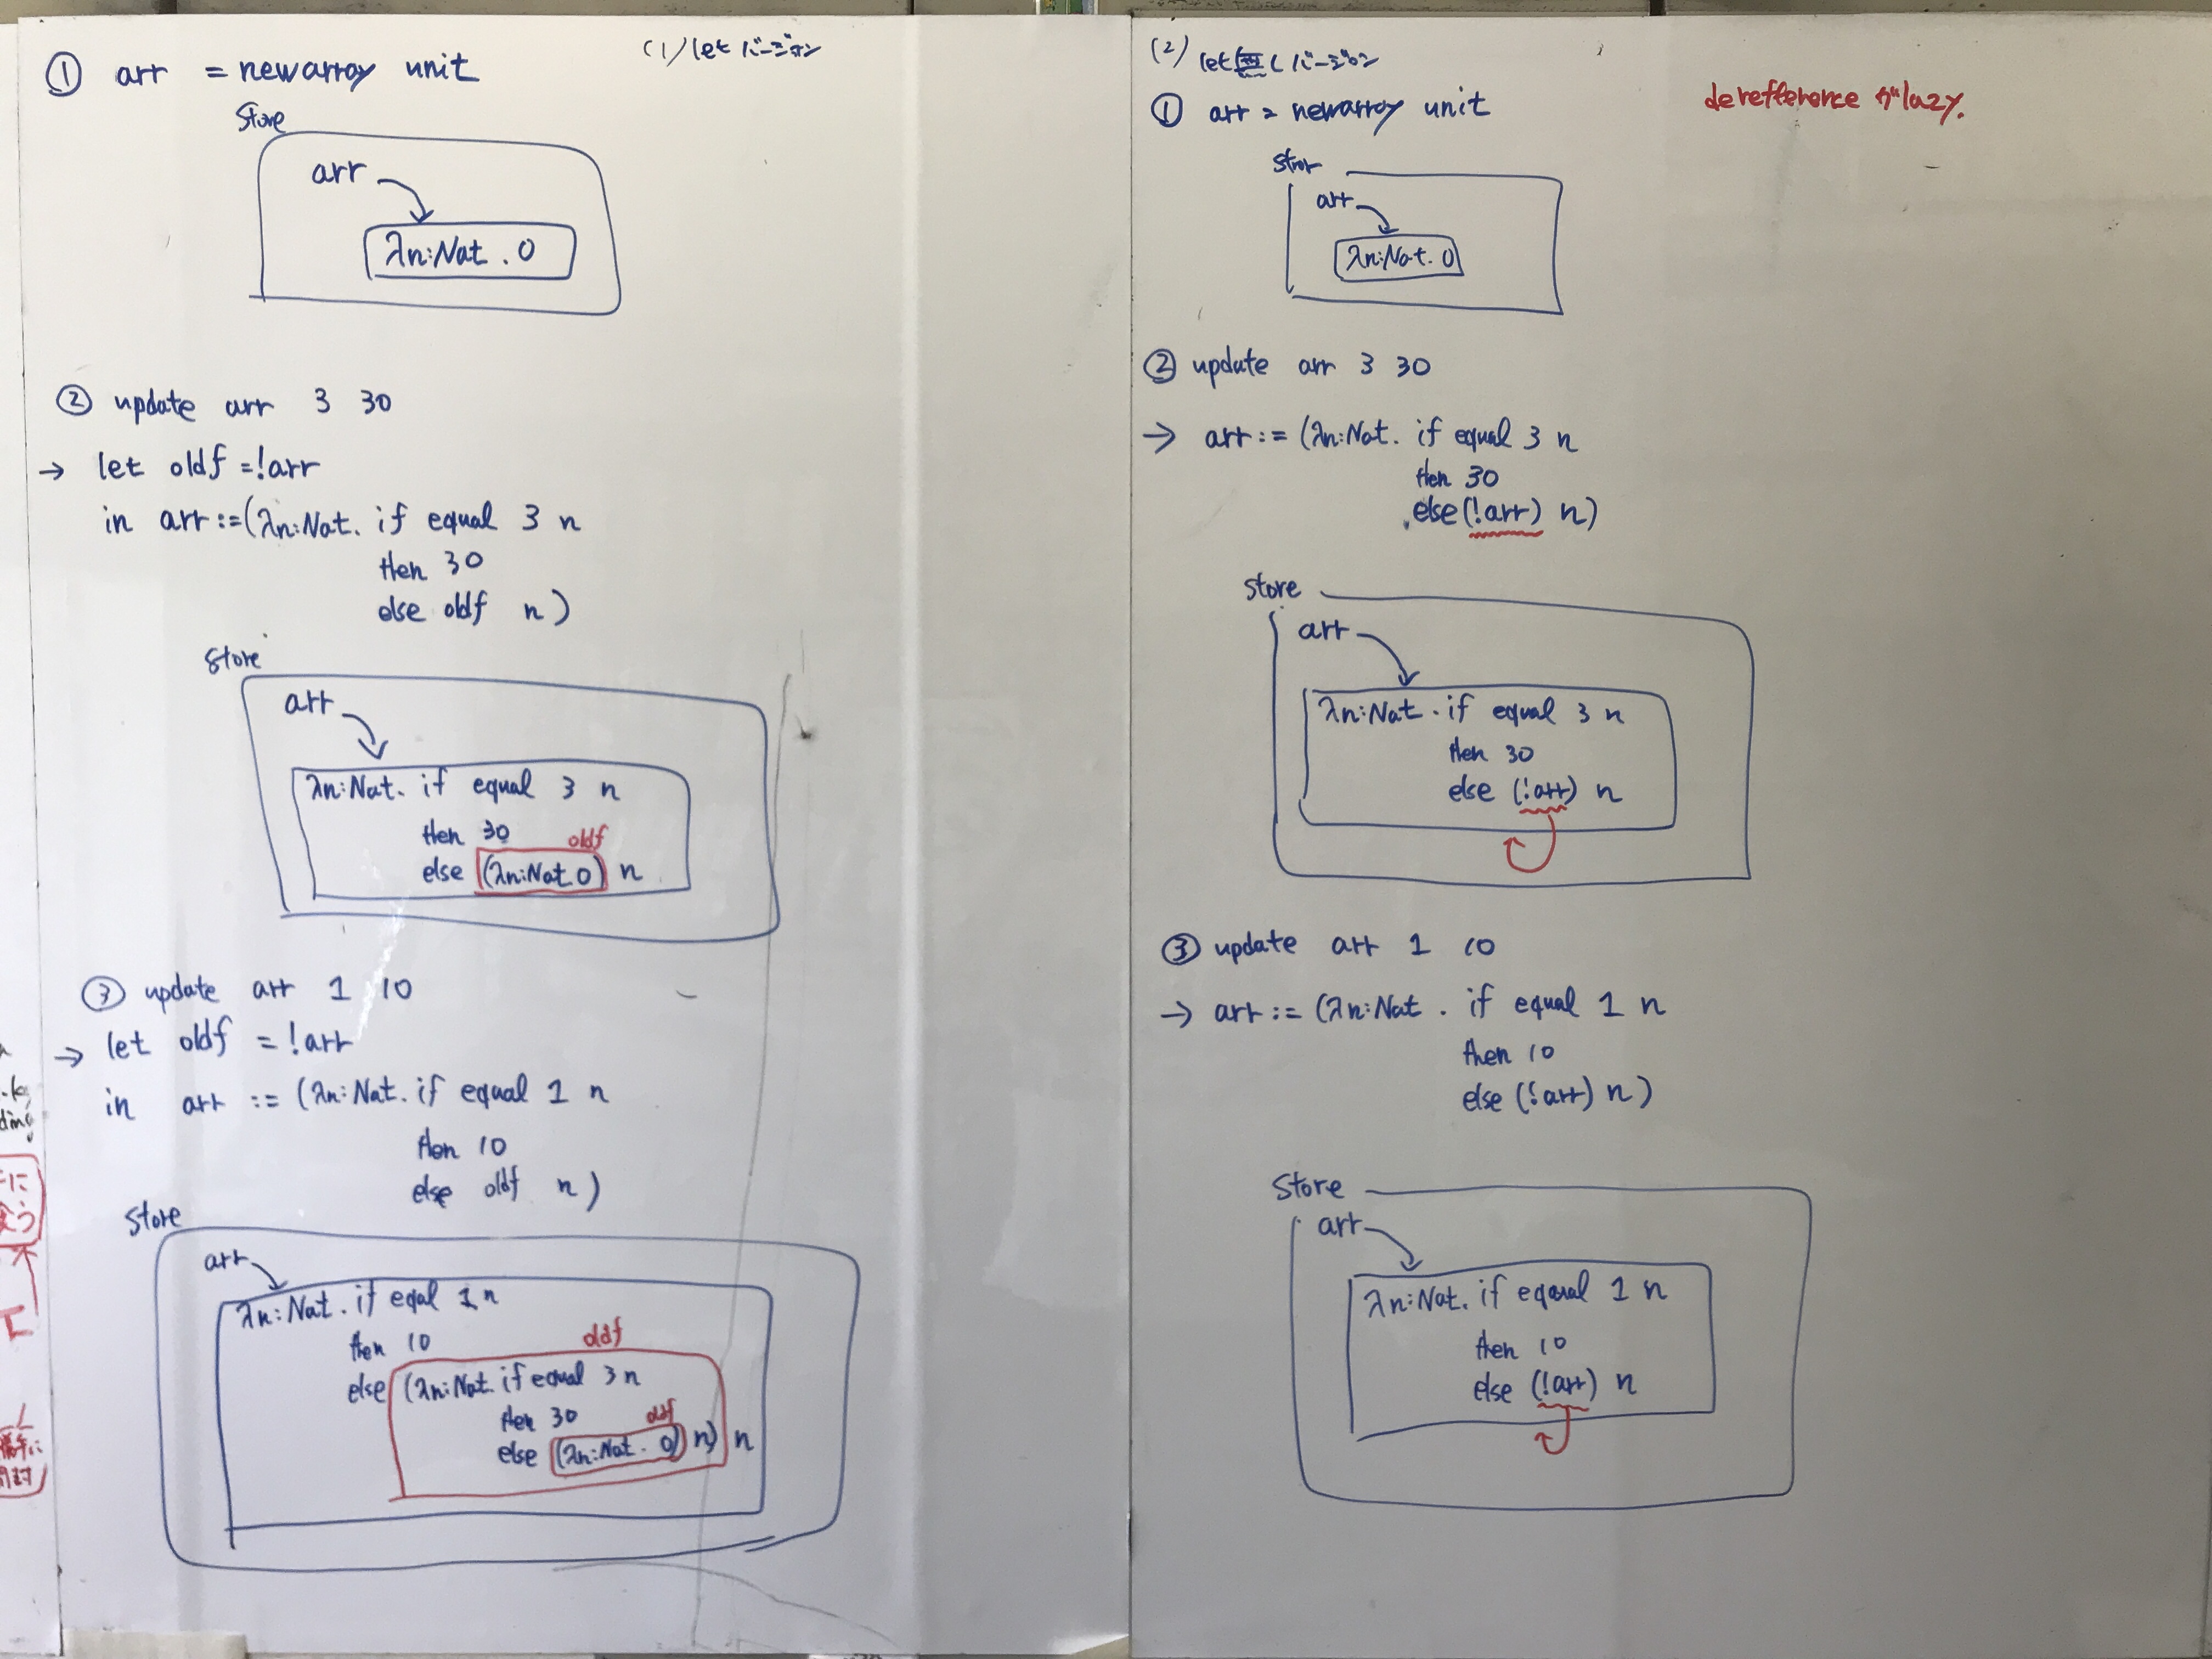 (1) let バージョン
① arr = newarray unit
Store
arr
λn:Nat . 0
② update arr 3 30
→ let oldf = !arr
in arr := (λn:Nat. if equal 3 n
then 30
else oldf n)
Store
arr
λn:Nat. if equal 3 n
then 30
oldf
else (λn:Nat.0) n
③ update arr 1 10
→ let oldf = !arr
in arr := (λn:Nat. if equal 1 n
then 10
else oldf n)
Store
arr
λn:Nat. if eqal 1 n
then 10
oldf
else (λn:Nat. if equal 3 n
then 30
oldf
else (λn:Nat. 0) n) n
(2) let無しバージョン
derefference がlazy.
① arr = newarray unit
Stor
arr
λn:Nat. 0
② update arr 3 30
→ arr := (λn:Nat. if equal 3 n
then 30
else (!arr) n)
Store
arr
λn:Nat. if equal 3 n
then 30
else (!arr) n
③ update arr 1 10
→ arr := (λn:Nat . if equal 1 n
then 10
else (!arr) n)
Store
arr
λn:Nat. if equal 1 n
then 10
else (!arr) n